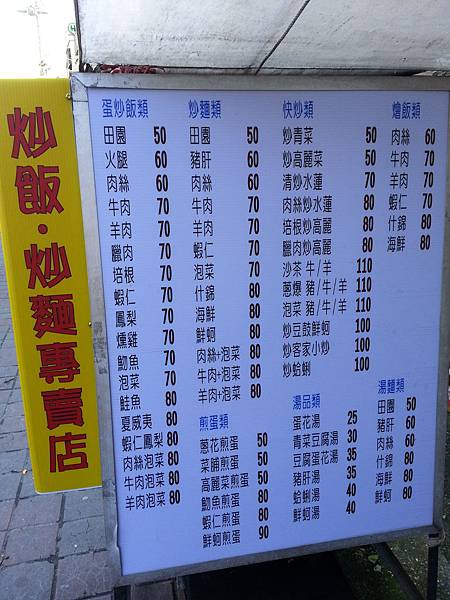 炒飯·炒麵專賣店
蛋炒飯類
田園 50
火腿 60
肉絲 60
牛肉 70
羊肉 70
臘肉 70
培根 70
蝦仁 70
鳳梨 70
燻雞 70
魩魚 70
泡菜 70
鮭魚 80
夏威夷 80
蝦仁鳳梨 80
肉絲泡菜 80
牛肉泡菜 80
羊肉泡菜 80
炒麵類
田園 50
豬肝 60
肉絲 60
牛肉 70
羊肉 70
蝦仁 70
泡菜 70
什錦 80
海鮮 80
鮮蚵 80
肉絲+泡菜 80
牛肉+泡菜 80
羊肉+泡菜 80
煎蛋類
蔥花煎蛋 50
菜脯煎蛋 50
高麗菜煎蛋 50
魩魚煎蛋 80
蝦仁煎蛋 80
鮮蚵煎蛋 90
快炒類
炒青菜 50
炒高麗菜 50
清炒水蓮 70
肉絲炒水蓮 80
培根炒高麗 80
臘肉炒高麗 80
沙茶 牛/羊 110
蔥爆 豬/牛/羊 110
泡菜 豬/牛/羊 110
炒豆鼓鮮蚵 100
炒客家小炒 100
炒蛤蜊 100
湯品類
蛋花湯 25
青菜豆腐湯 30
豆腐蛋花湯 35
豬肝湯 35
蛤蜊湯 40
鮮蚵湯 40
燴飯類
肉絲 60
牛肉 70
羊肉 70
蝦仁 70
什錦 80
海鮮 80
湯麵類
田園 50
豬肝 60
肉絲 60
什錦 80
海鮮 80
鮮蚵 80